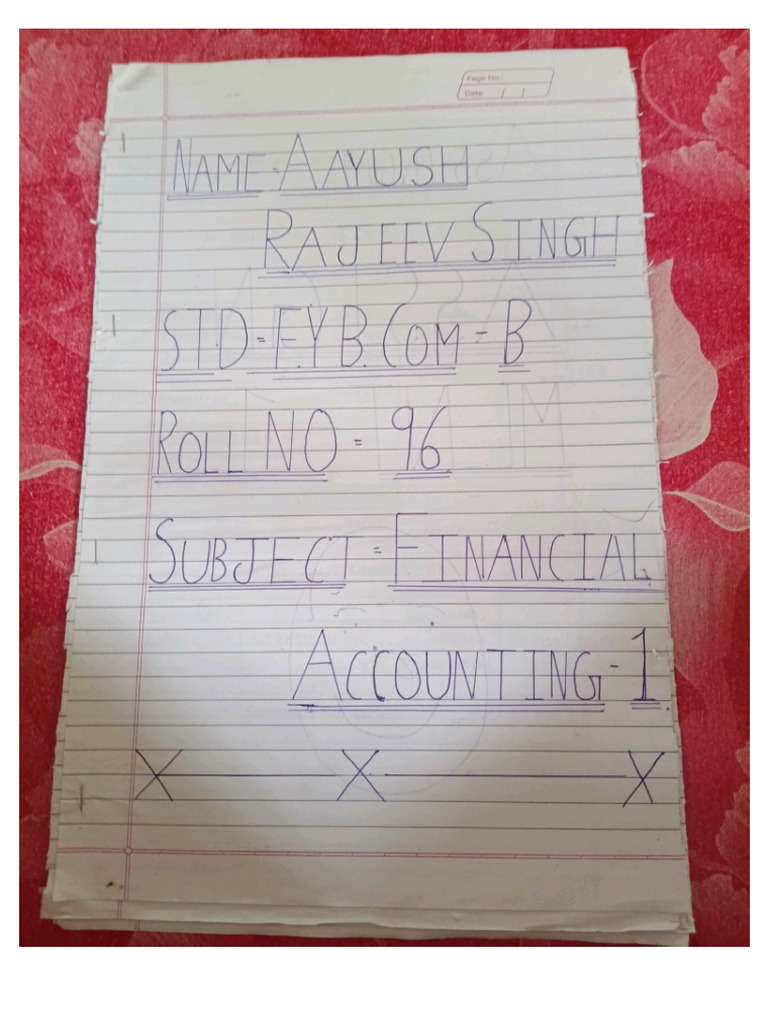 Page No.:
Date / /
NAME = AAYUSH
RAJEEV SINGH
STD = F.Y B. COM - B
ROLL NO = 96
SUBJECT = FINANCIAL
ACCOUNTING - 1
X X X